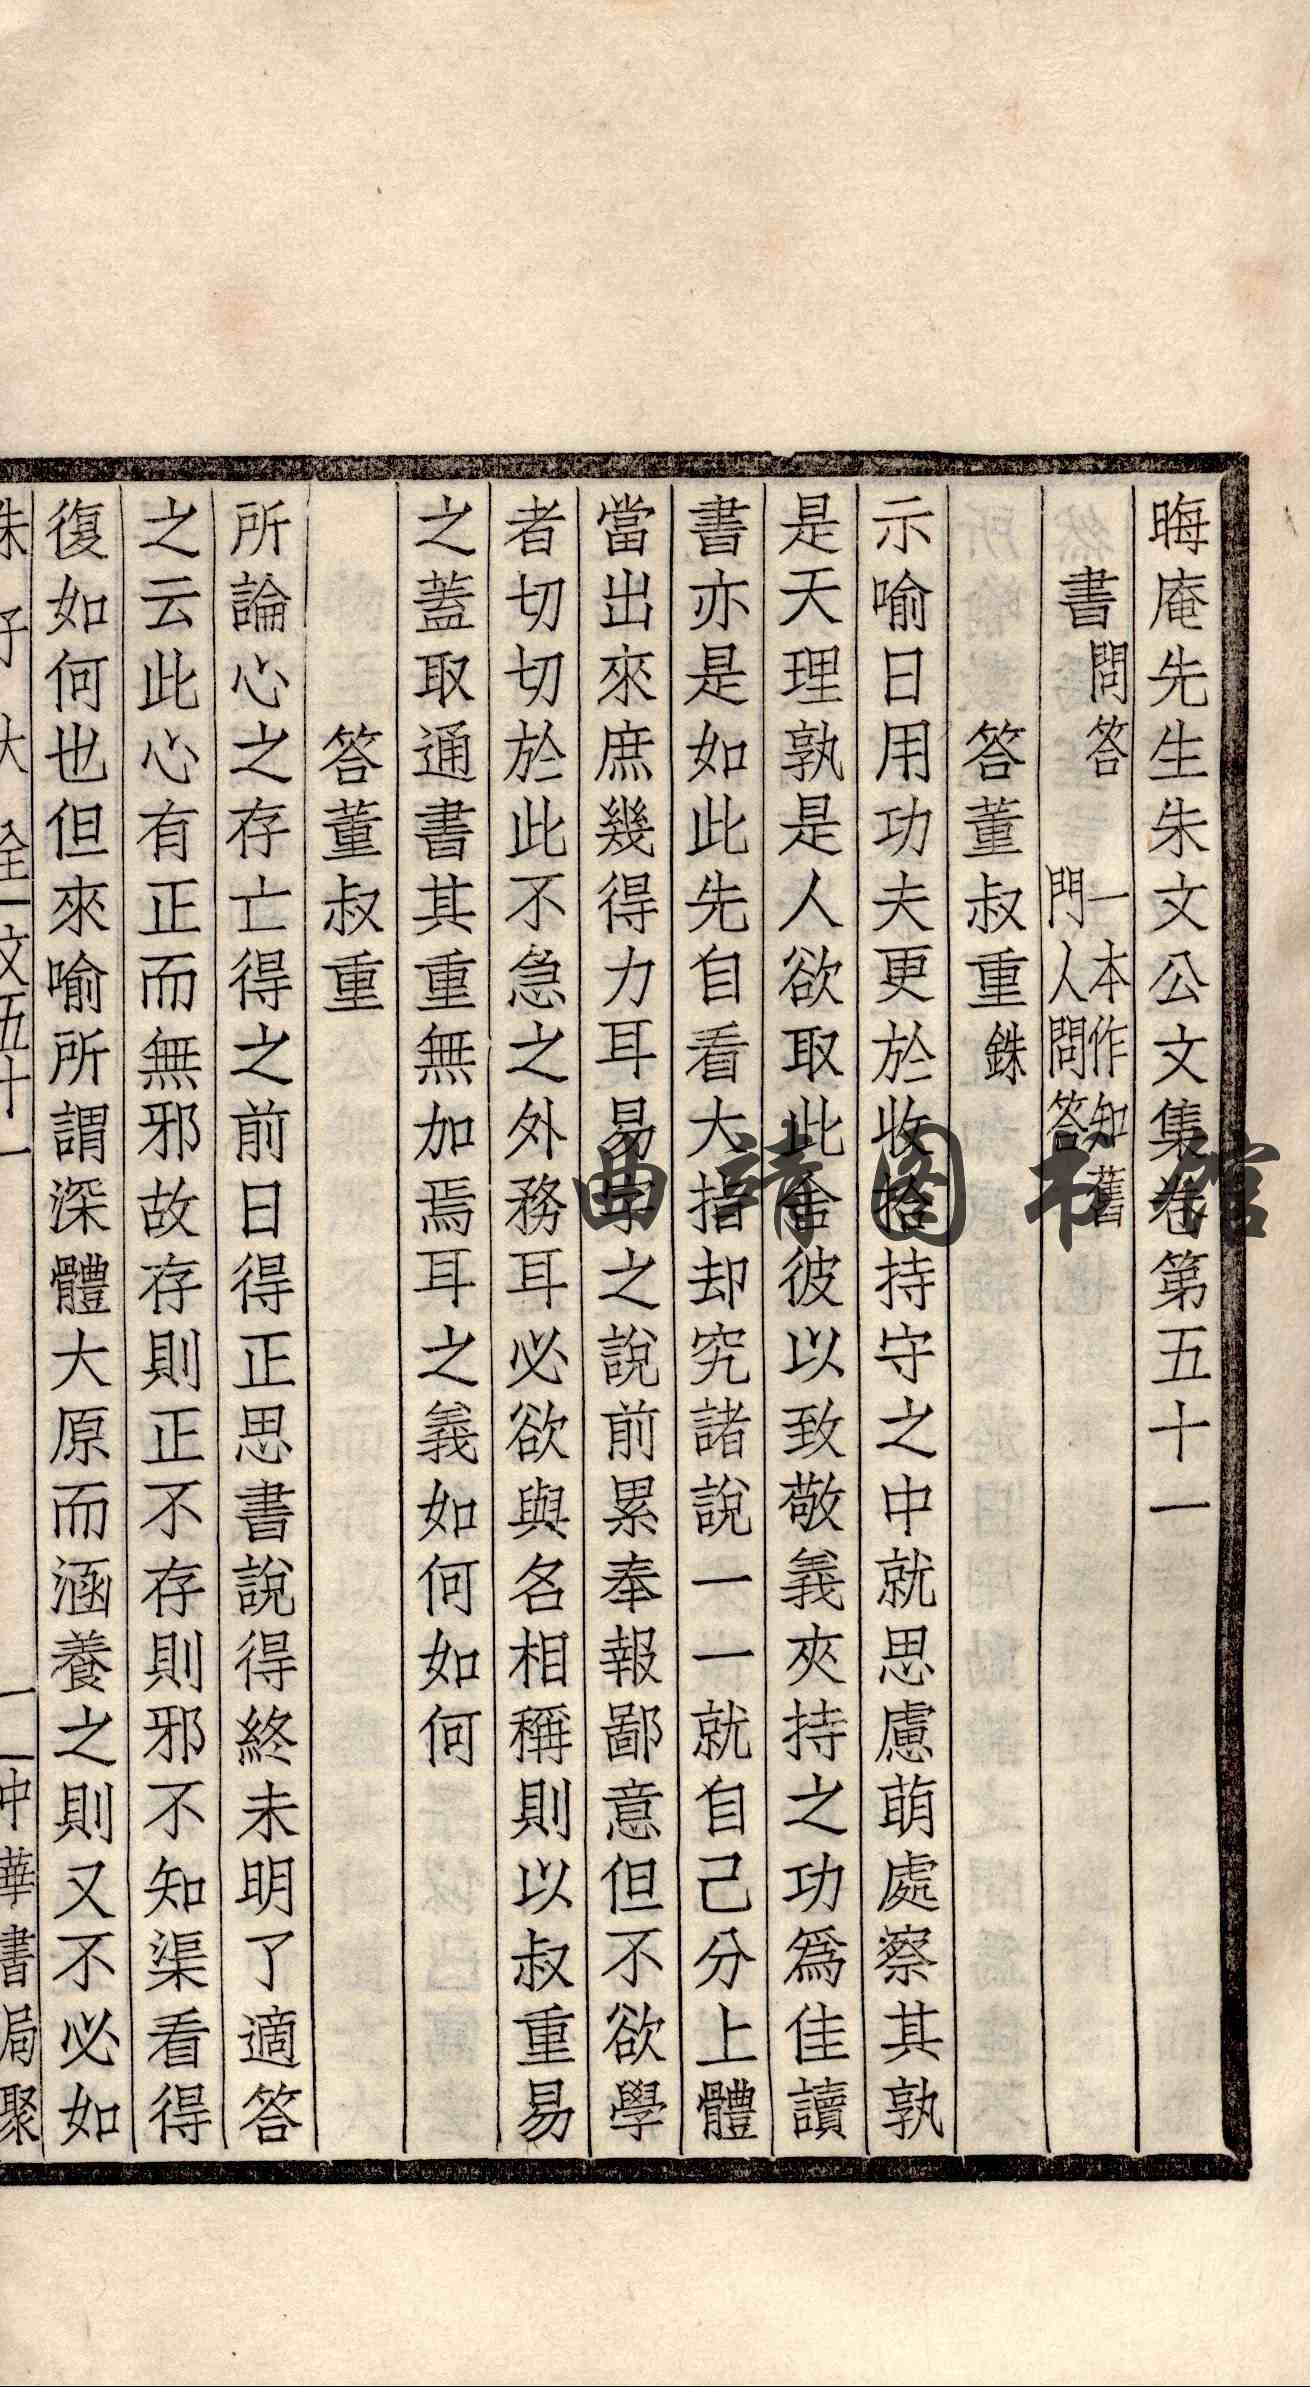 晦庵先生朱文公文集卷第五十一
書問答 一本作知舊門人問答
答董叔重銖
示喻日用功夫更於收拾持守之中就思慮萌處察其孰
是天理孰是人欲取此舍彼以致敬義夾持之功爲佳讀
書亦是如此先自看大指却究諸說一一就自己分上體
當出來庶幾得力耳易字之說前累奉報鄙意但不欲學
者切切於此不急之外務耳必欲與名相稱則以叔重易
之蓋取通書其重無加焉耳之義如何如何
答董叔重
所論心之存亡得之前日得正思書說得終未明了適答
之云此心有正而無邪故存則正不存則邪不知渠看得
復如何也但來喻所謂深體大原而涵養之則又不必如
朱子大全 文五十一 一 中華書局聚
曲靖图书馆